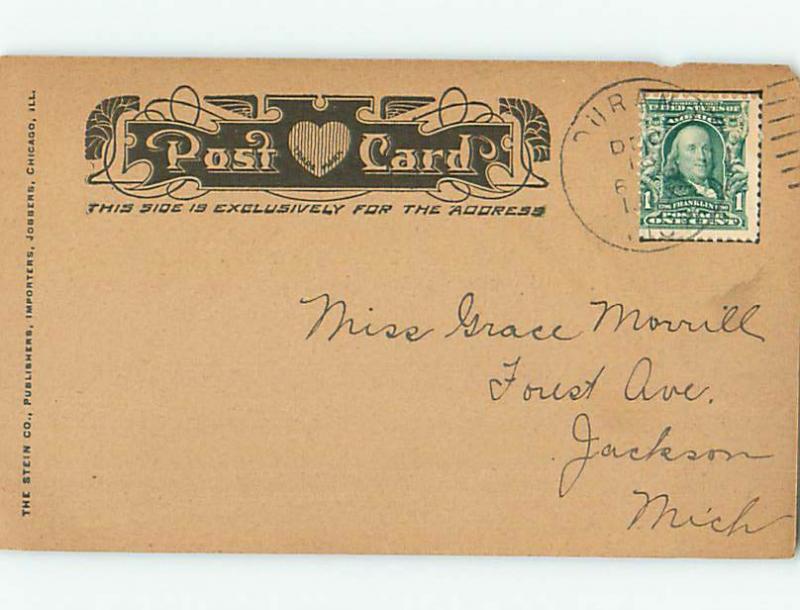 Post Card
THIS SIDE IS EXCLUSIVELY FOR THE ADDRESS
THE STEIN CO., PUBLISHERS, IMPORTERS, JOBBERS, CHICAGO, ILL.
DURA
DE
UNITED STATES OF
1 FRANKLIN 1
POSTAGE
ONE CENT
Miss Grace Morrill
Forest Ave.
Jackson
Mich